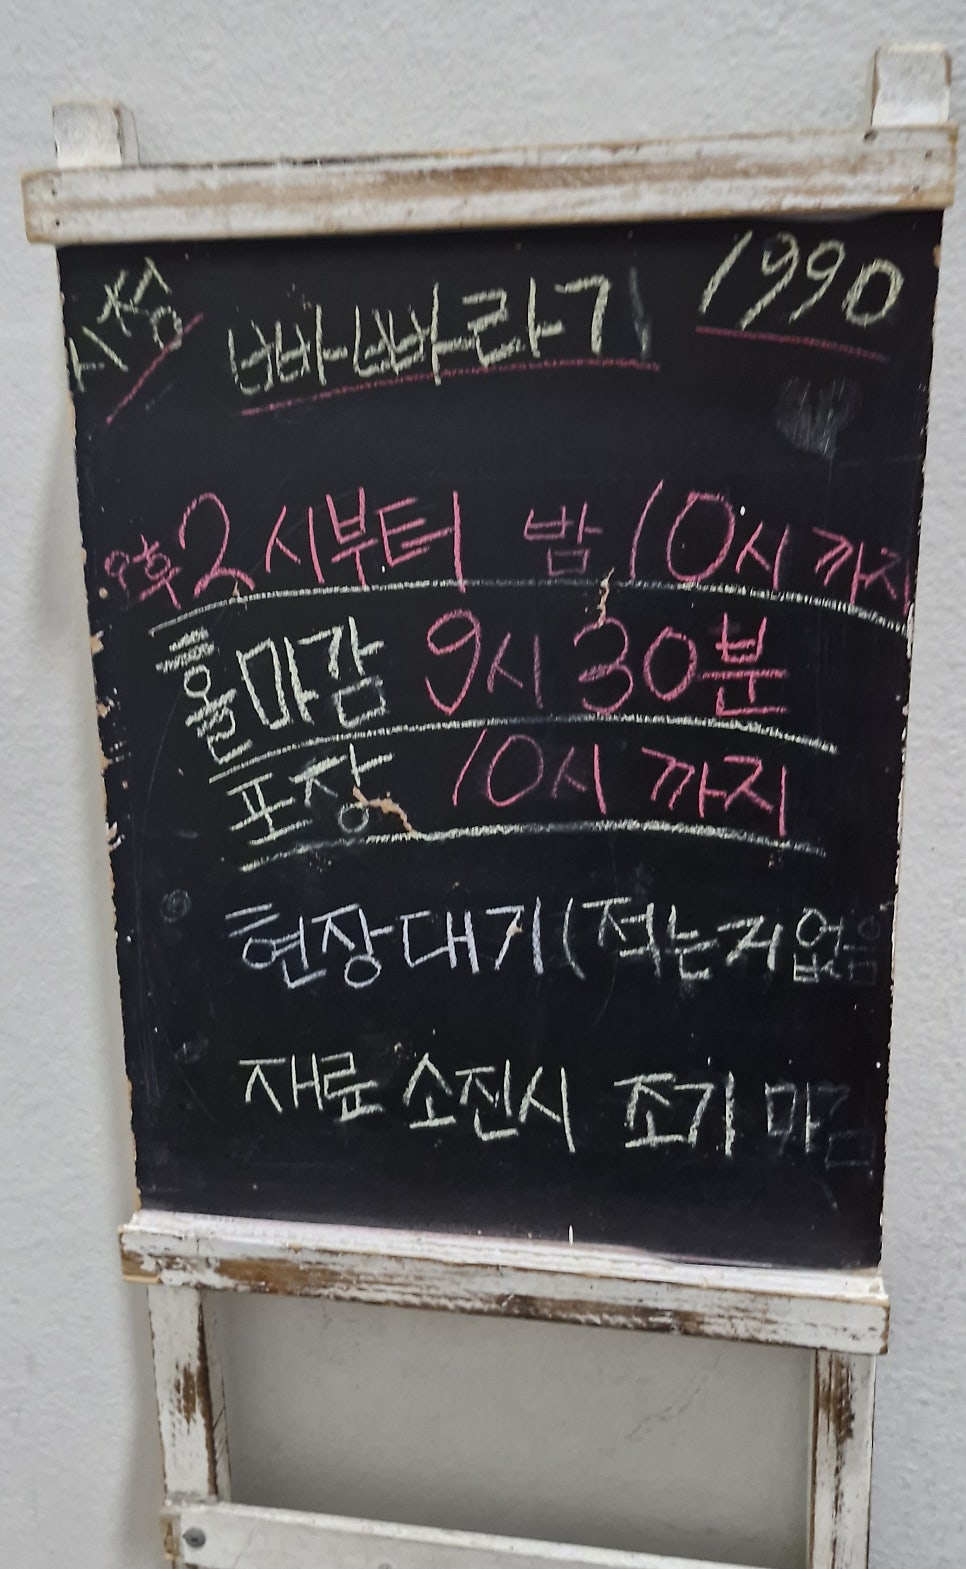 시장 빠빠라기 1990
오후 2시부터 밤 10시 까지
홀마감 9시 30분
포장 10시 까지
현장대기 (적는거 없음
재료 소진시 조기 마감